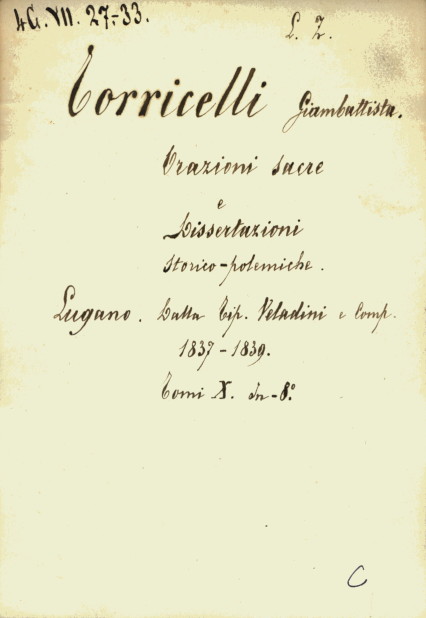 4G. VII. 27-33.
L. Z.
Torricelli Giambattista.
Orazioni sacre
e
Dissertazioni
storico-polemiche.
Lugano. Dalla Tip. Veladini e Comp.
1837-1839.
Tomi X. in-8.°
C